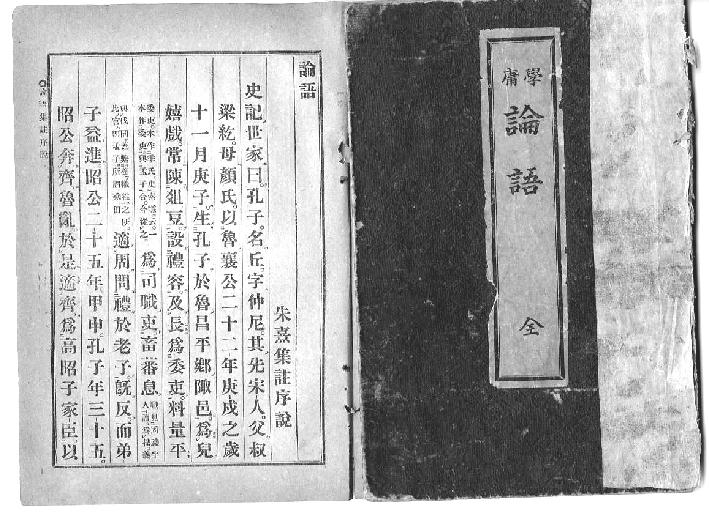 學庸
論語
全
論語
朱熹集註序說
史記世家曰孔子名丘字仲尼其先宋人父叔
梁紇母顏氏以魯襄公二十二年庚戌之歲
十一月庚子生孔子於魯昌平鄉陬邑爲兒
嬉戲常陳俎豆設禮容及長爲委吏料量平
爲司職吏畜蕃息
適周問禮於老子旣反而弟
子益進昭公二十五年甲申孔子年三十五
昭公奔齊魯亂於是適齊爲高昭子家臣以
論語集註序說